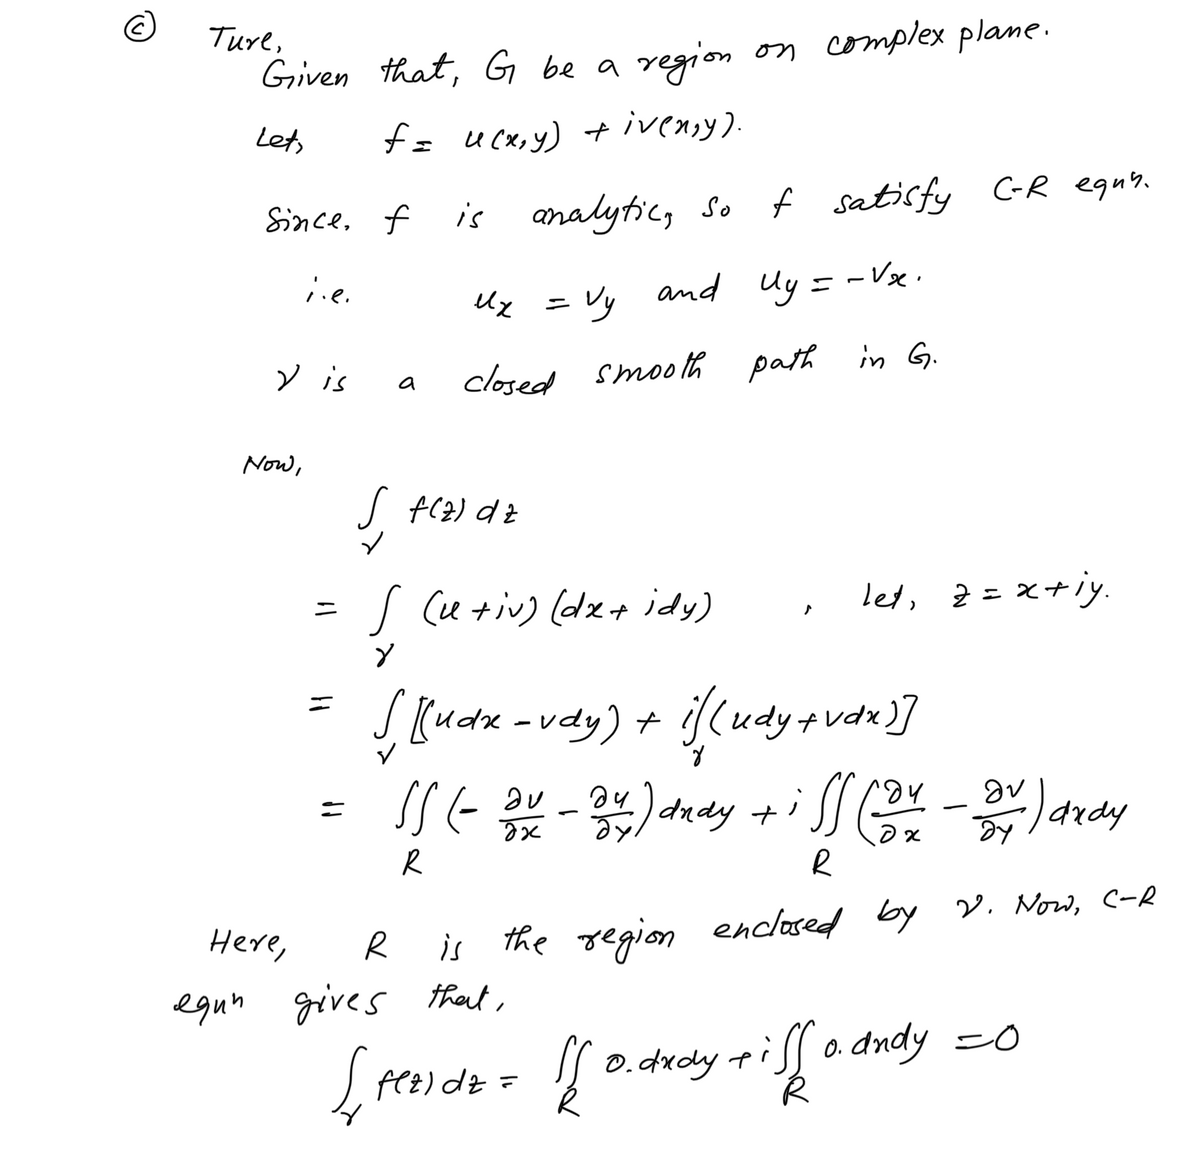 (c) Ture,
Given that, G be a region on complex plane.
Let, f = u(x,y) + iv(x,y).
Since, f is analytic, so f satisfy C-R eqns.
i.e. ux = vy and uy = -vx.
γ is a closed smooth path in G.
Now,
∫γ f(z) dz
= ∫γ (u + iv) (dx + idy) , let, z = x + iy.
= ∫γ [(udx - vdy) + i∫γ (udy + vdx)]
= ∬R (- ∂v/∂x - ∂u/∂y) dxdy + i ∬R (∂u/∂x - ∂v/∂y) dxdy
Here, R is the region enclosed by γ. Now, C-R
equn gives that,
∫γ f(z) dz = ∬R 0.dxdy + i ∬R 0.dxdy = 0